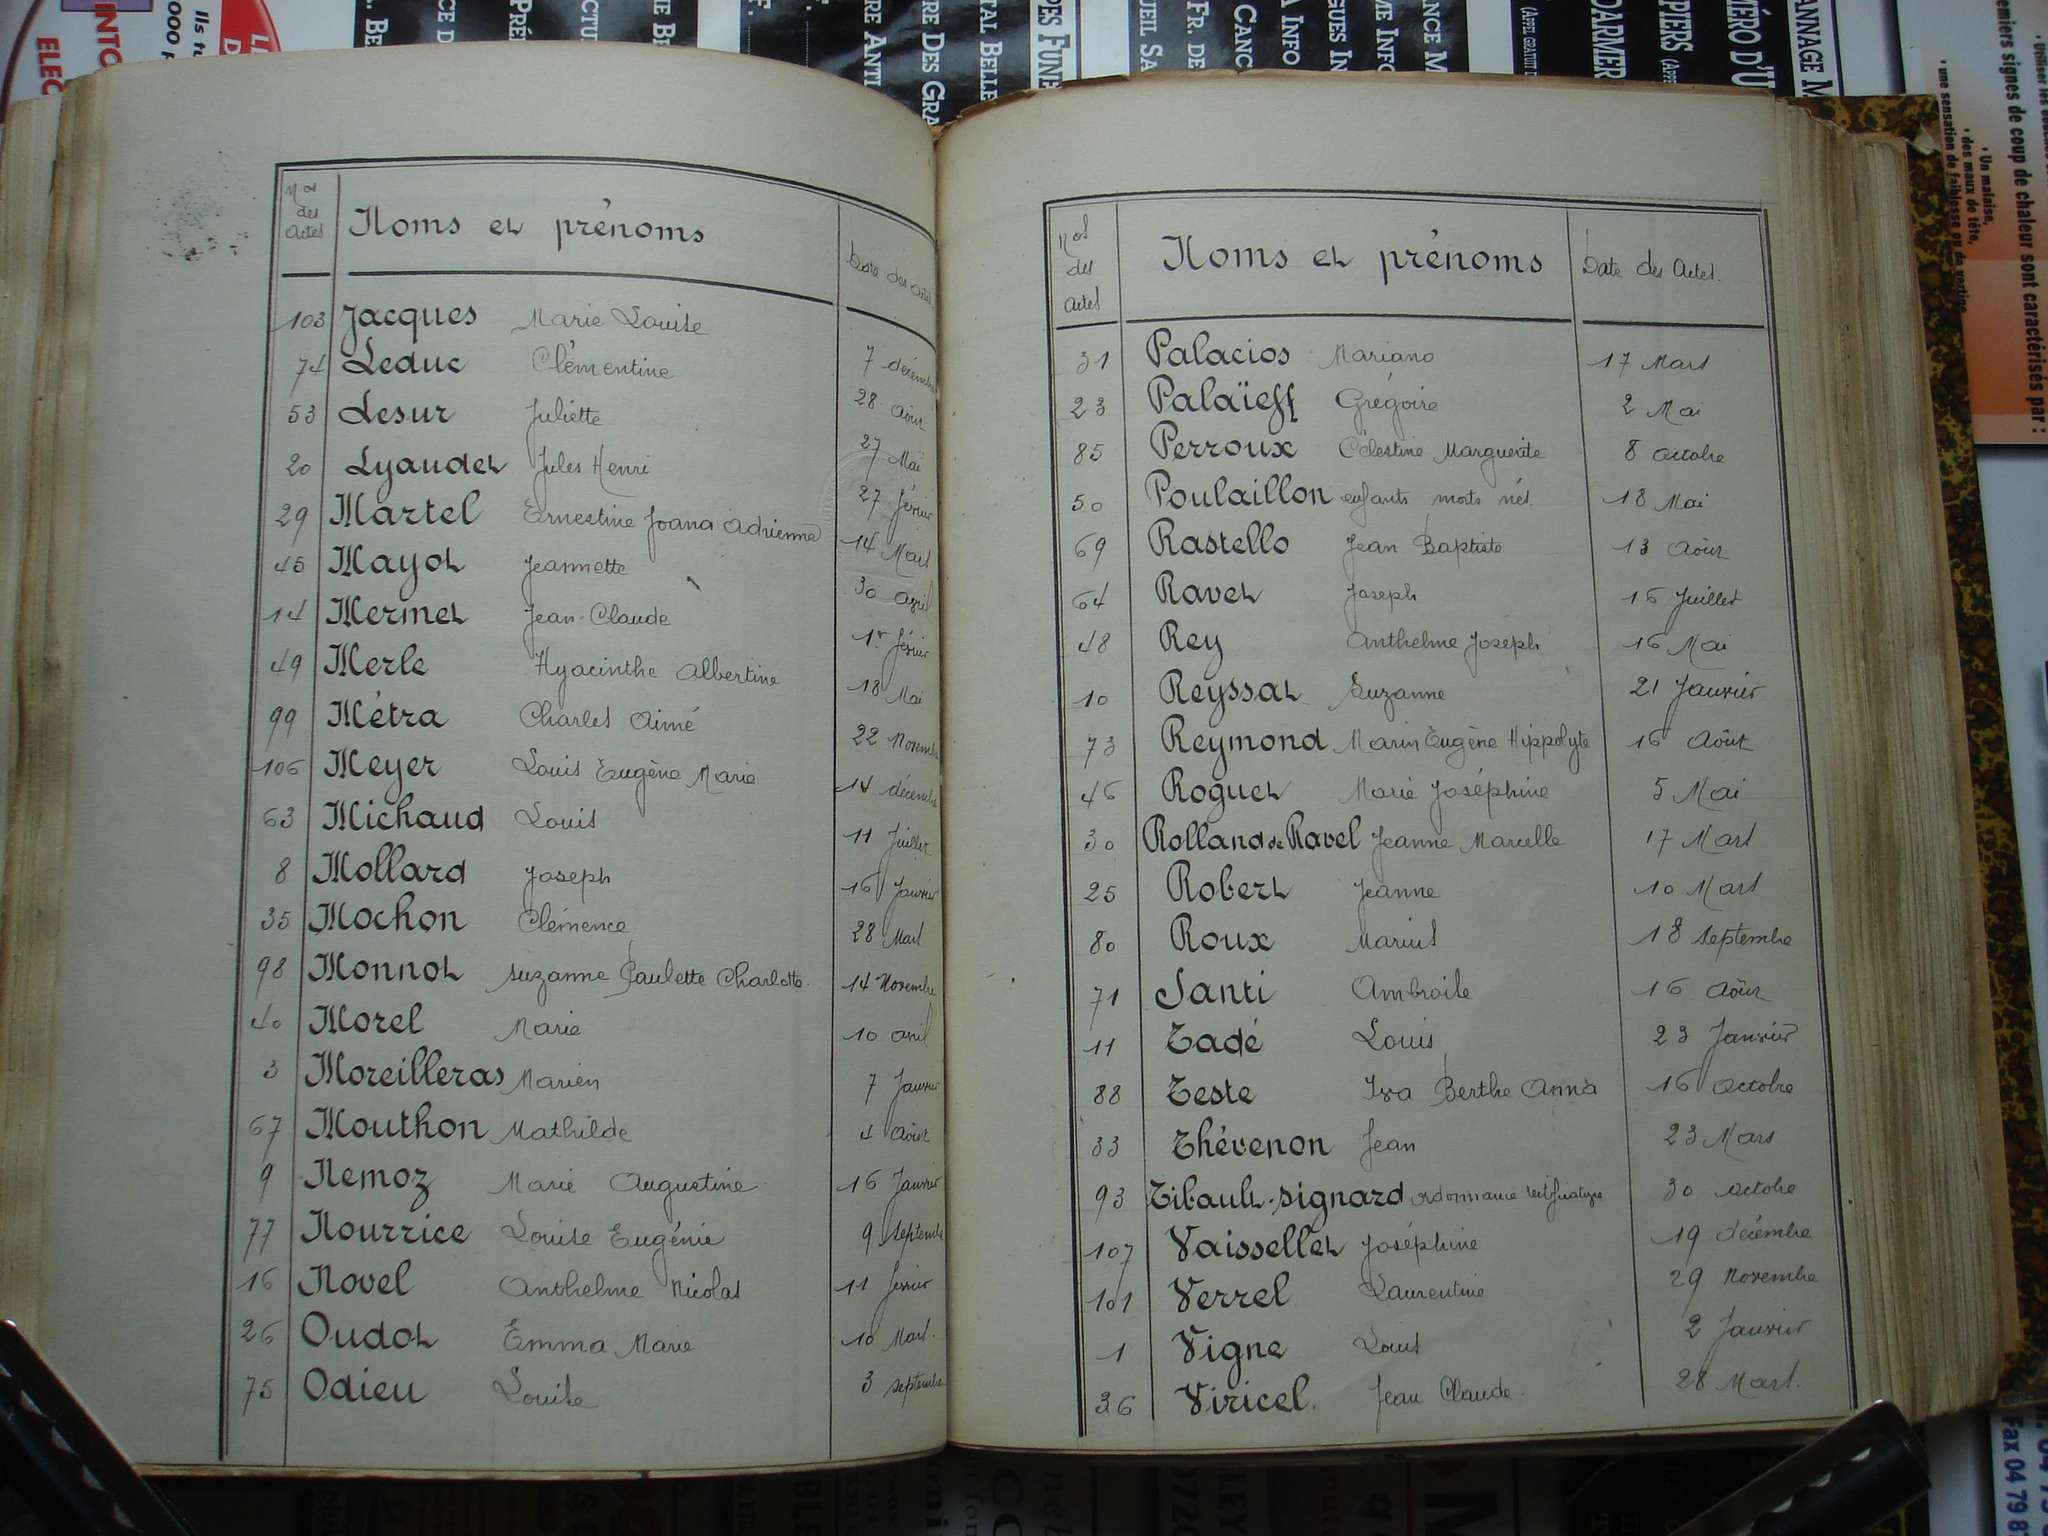 Nos des actes Noms et prénoms Date des actes
103 Jacques Marie Louise 7 décembre
74 Leduc Clémentine 28 Août
53 Lesur Juliette 27 Mai
20 Lyaudet Jules Henri 27 février
29 Martel Ernestine Joana Adrienne 14 Mars
45 Mayot Jeannette 30 avril
14 Mermet Jean-Claude 1er février
49 Merle Hyacinthe Albertine 18 Mai
99 Métra Charles Aimé 22 Novembre
106 Meyer Louis Eugène Marie 14 décembre
63 Michaud Louis 11 Juillet
8 Mollard Joseph 16 Janvier
35 Mochon Clémence 28 Mars
98 Monnot Suzanne Paulette Charlotte 14 Novembre
40 Morel Marie 10 avril
3 Moreilleras Marien 7 Janvier
67 Mouthon Mathilde 4 Août
9 Nemoz Marie Augustine 16 Janvier
77 Nourrice Louise Eugénie 9 Septembre
16 Novel Anthelme Nicolas 11 février
26 Oudot Emma Marie 10 Mars.
75 Odieu Louise 3 septembre
Nos des actes Noms et prénoms Date des Actes.
31 Palacios Mariano 17 Mars
23 Palaïeff Grégoire 2 Mai
85 Perroux Célestine Marguerite 8 octobre
50 Poulaillon enfants morts nés. 18 Mai
69 Rastello Jean Baptiste 13 Août
64 Ravet Joseph 16 Juillet
48 Rey Anthelme Joseph 16 Mai
10 Reyssat Suzanne 21 Janvier
73 Reymond Marin Eugène Hippolyte 16 Août
46 Roguet Marie Joséphine 5 Mai
30 Rolland de Ravel Jeanne Marcelle 17 Mars
25 Robert Jeanne 10 Mars
80 Roux Marius 18 Septembre
71 Santi Ambroise 16 Août
11 Tadé Louis 23 Janvier
88 Teste Isa Berthe Anna 16 Octobre
33 Thévenon Jean 23 Mars
93 Tibault-Signard 30 octobre
107 Vaissellet Joséphine 19 décembre
101 Verrel Laurentine 29 Novembre
1 Vigne Louis 2 Janvier
36 Viricel. Jean Claude. 28 Mars.